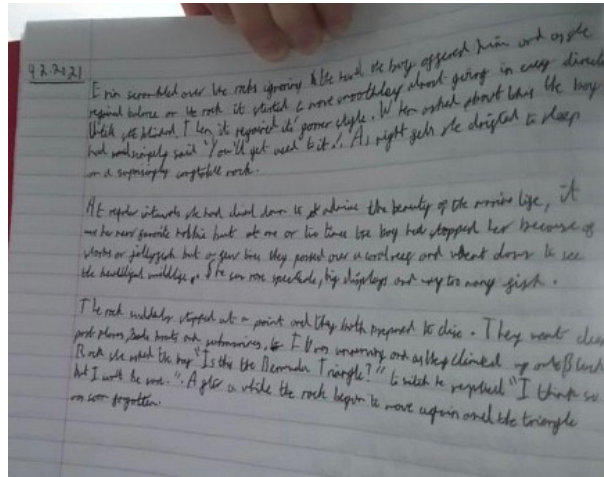 4.2.2021
Erin scrambled over the rocks ignoring the hand the boy offered him and as she
regained balance on the rock it started to move smoothly about going in every
it regained its former style. When asked about this the boy
had simply said "You'll get used to it". As night fell she drifted to sleep
on a surprisingly comfortable rock.
At regular intervals she had dived down to admire the beauty of the marine life, it
was her new favorite hobbie but at one or two times the boy had stopped her because of
sharks or jellyfish but a few times they passed over a coral reef and went down to see
the beautiful wildlife. She saw more big displays and way too many fish.
The rock suddenly stopped at a point and they both prepared to dive. They went
past planes, boats and submarines. and as they climbed up onto
Rock she asked the boy "Is this the Bermuda Triangle?" to witch he replied "I think so
but I won't be sure.". After a while the rock began to move again and the triangle
was soon forgotten.